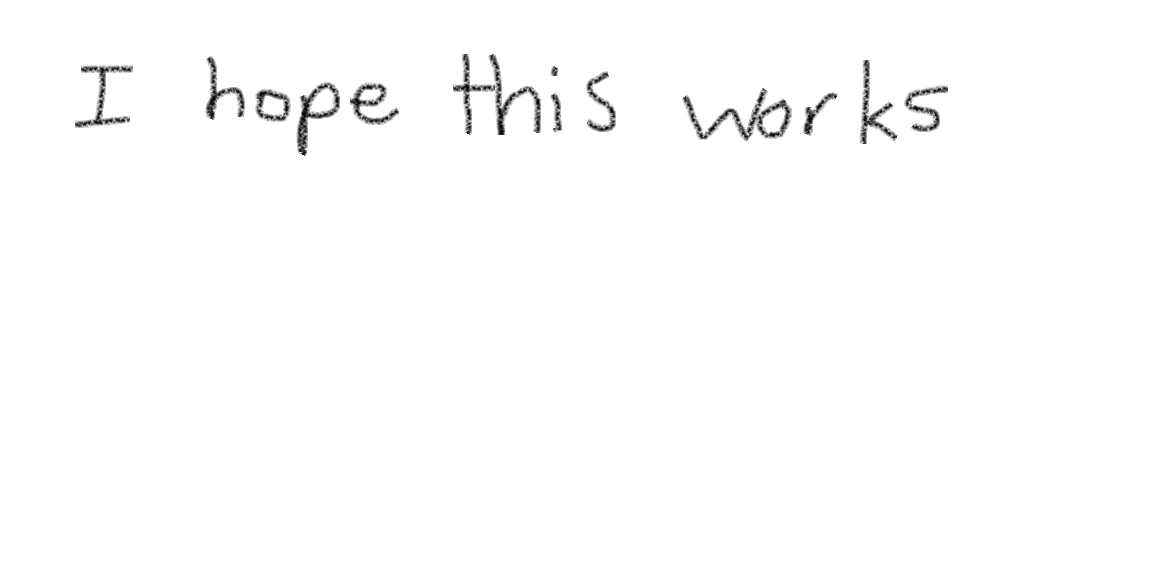 I hope this works